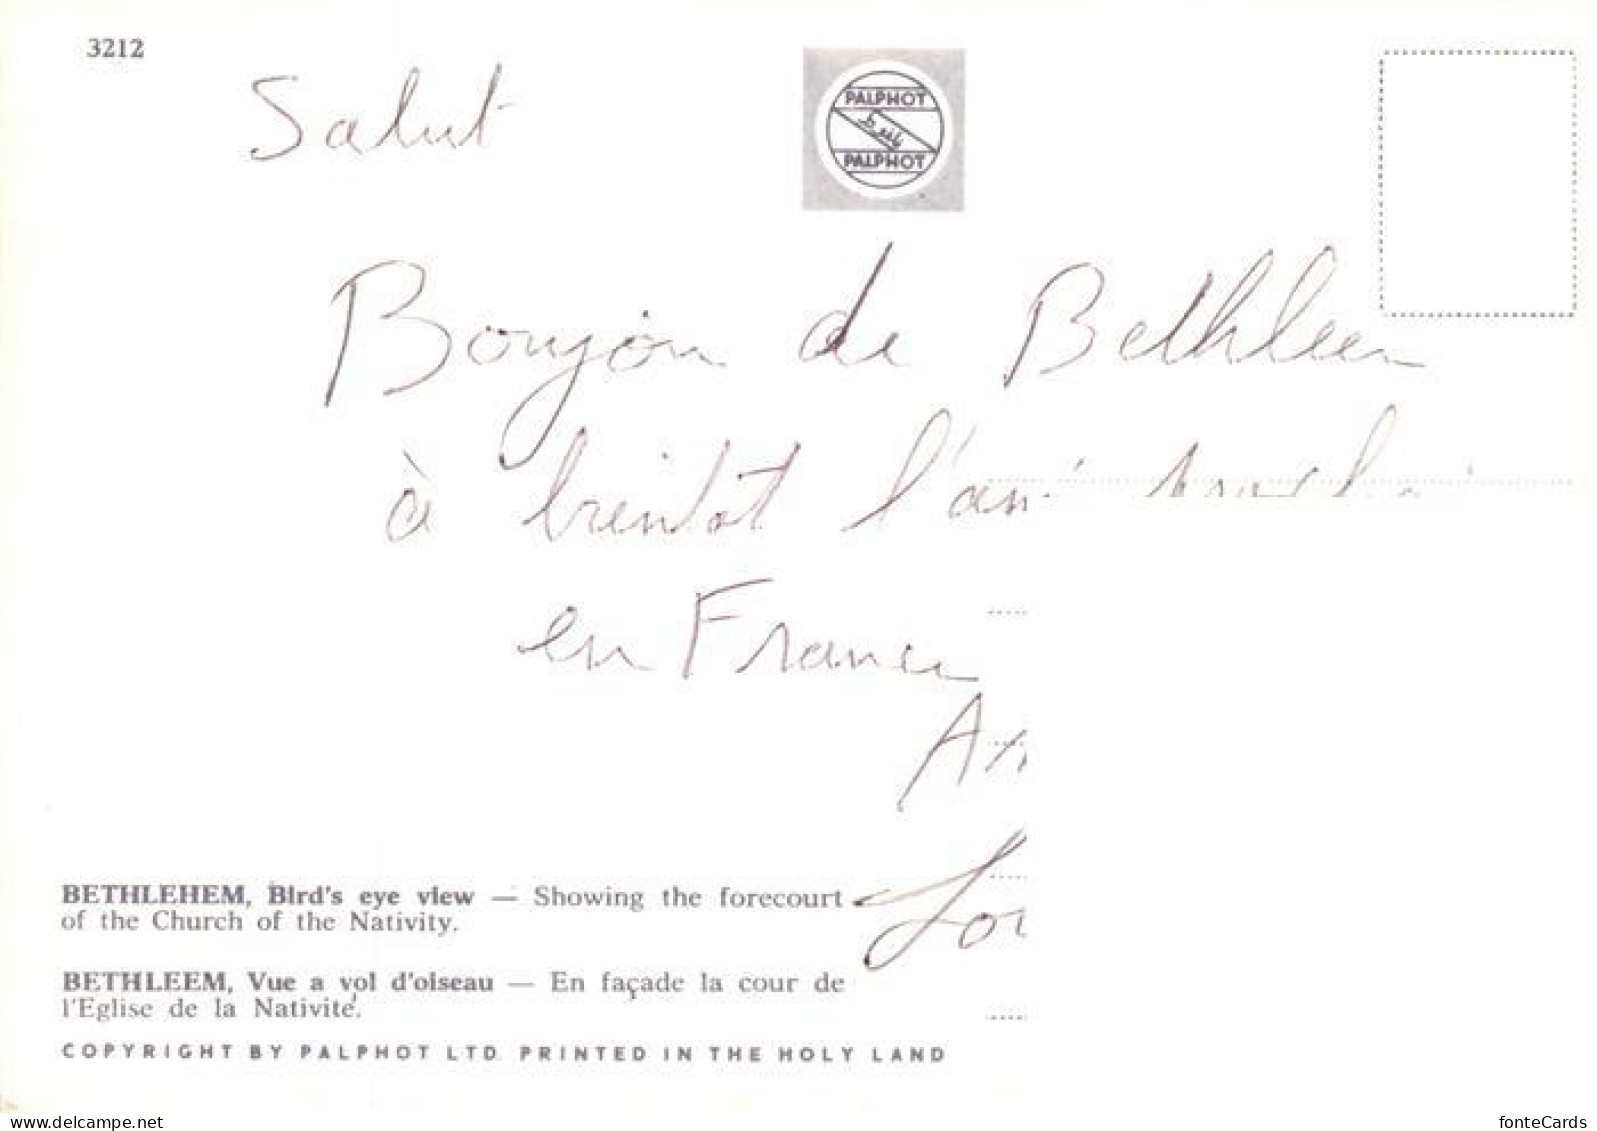 3212
PALPHOT
PALPHOT
Salut
Boujou de Bethleem
à bientot l'an
en France
BETHLEHEM, Bird's eye view — Showing the forecourt
of the Church of the Nativity.
BETHLEEM, Vue a vol d'oiseau — En façade la cour de
l'Eglise de la Nativité.
COPYRIGHT BY PALPHOT LTD. PRINTED IN THE HOLY LAND
delcampe.net
fonteCards